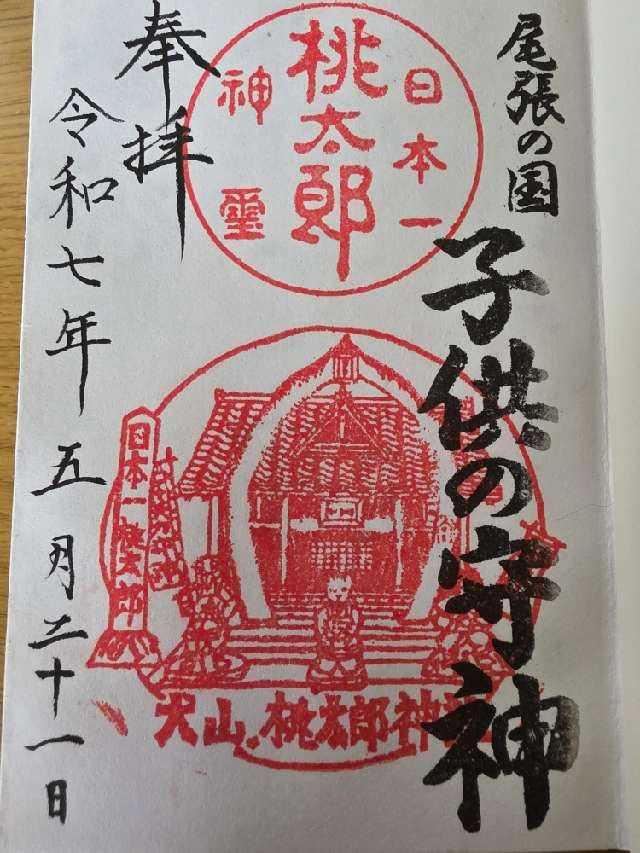 尾張の国
子供の守神
日本一
桃太郎
神璽
日本一桃太郎
犬山 桃太郎神社
奉拝
令和七年五月二十一日